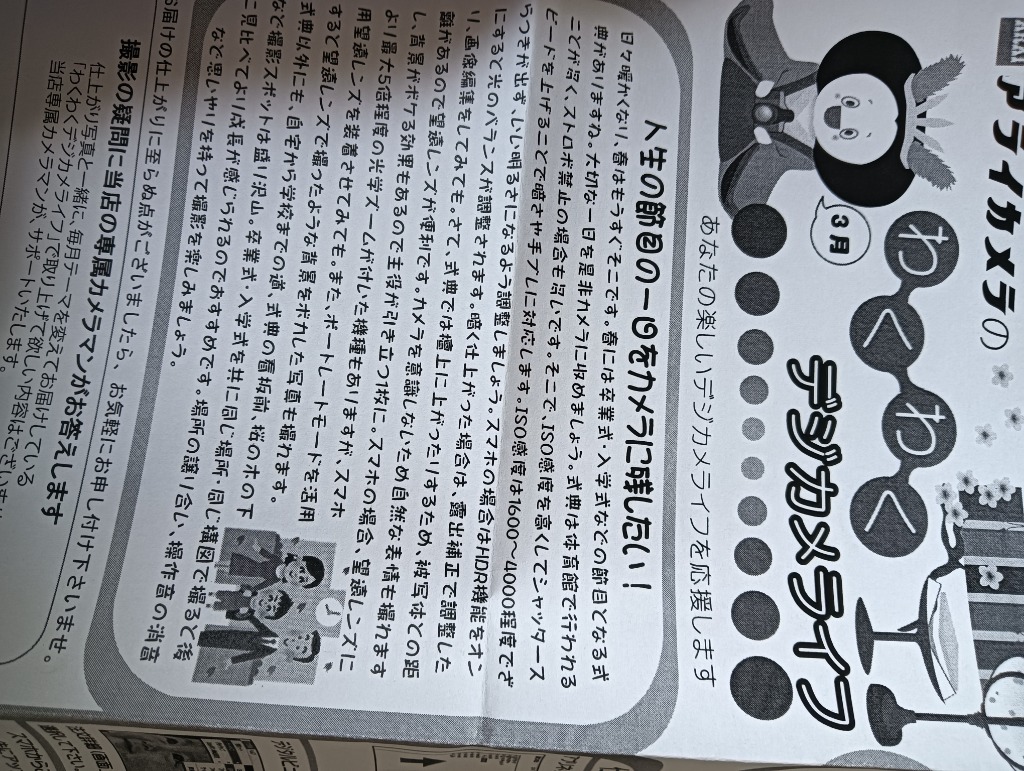 アライカメラの
わくわく
デジカメライフ
3月
あなたの楽しいデジカメライフを応援します
人生の節目の一日をカメラに残したい！
日々暖かくなり、春はもうすぐそこです。春には卒業式・入学式などの節目となる式
典がありますね。大切な一日を是非カメラに収めましょう。式典は体育館で行われる
ことが多く、ストロボ禁止の場合も多いです。そこで、ISO感度を高くしてシャッタース
ピードを上げることで暗さや手ブレに対応します。ISO感度は1600～4000程度でざ
らつきが出ず、いい明るさになるよう調整しましょう。スマホの場合はHDR機能をオン
にすると光のバランスが調整されます。暗く仕上がった場合は、露出補正で調整した
り、画像編集をしてみても。さて、式典では壇上に上がったりするため、被写体との距
離があるので望遠レンズが便利です。カメラを意識しないため自然な表情も撮れます
し、背景がボケる効果もあるので主役が引き立つ1枚に。スマホの場合、望遠レンズに
より最大5倍程度の光学ズームが付いた機種もありますが、スマホ
用望遠レンズを装着させてみても。また、ポートレートモードを活用
すると望遠レンズで撮ったような背景をボカした写真も撮れます。
式典以外にも、自宅から学校までの道、式典の看板前、桜の木の下
など撮影スポットは盛り沢山。卒業式・入学式を共に同じ場所・同じ構図で撮ると後
に見比べてより成長が感じられるのでおすすめです。場所の譲り合い、操作音の消音
など思いやりを持って撮影を楽しみましょう。
お届けの仕上がりに至らぬ点がございましたら、お気軽にお申し付け下さいませ。
撮影の疑問に当店の専属カメラマンがお答えします
仕上がり写真と一緒に、毎月テーマを変えてお届けしている
「わくわくデジカメライフ」で取り上げて欲しい内容はござい
当店専属カメラマンが、サポートいたします。